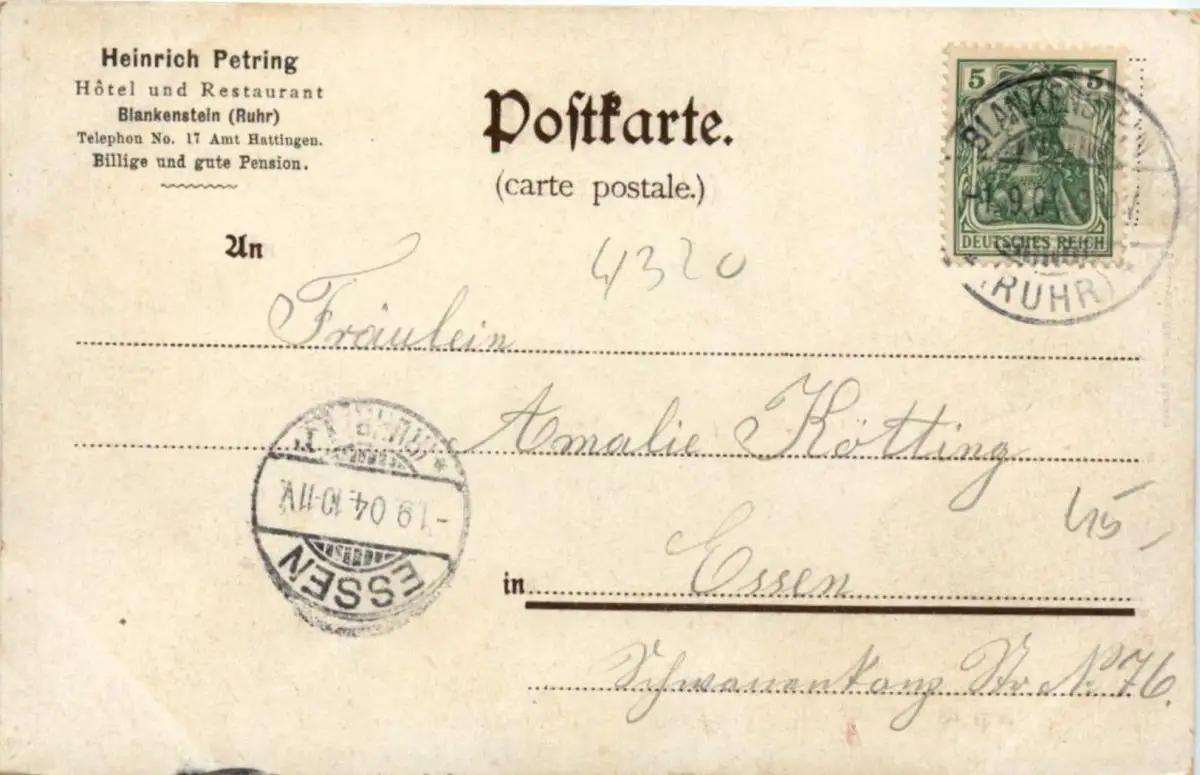 Heinrich Petring
Hôtel und Restaurant
Blankenstein (Ruhr)
Telephon No. 17 Amt Hattingen.
Billige und gute Pension.
Poſtkarte.
(carte postale.)
5 5
DEUTSCHES REICH
BLANKENSTEIN
(RUHR)
An
4320
Fräulein
Amalie Kötting
ESSEN
-1.9.04.10-11V.
in Essen
Str No 76.